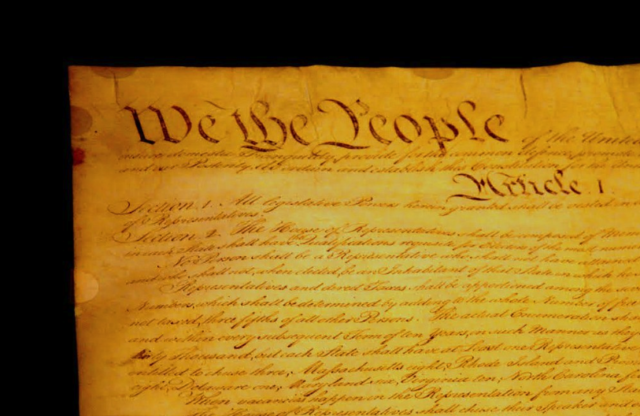 We the People of the United
insure domestic Tranquility, provide for the common defence, promote
and our Posterity, do ordain and establish this Constitution for the
Article 1
Section 1. All legislative Powers herein granted shall be vested in
of Representatives.
Section 2. The House of Representatives shall be composed of Mem
in each State shall have Qualifications requisite for Electors of the most
No Person shall be a Representative who shall not have
and who shall not, when elected, be an Inhabitant of that State in which he
Representatives and direct Taxes shall be apportioned among the
Numbers, which shall be determined by adding to the whole Number of free
not taxed, three fifths of all other Persons. The actual Enumeration shall
and within every subsequent Term of ten Years, in such Manner as they
thirty Thousand, but each State shall have at Least one Representative
entitled to chuse three, Massachusetts eight, Rhode Island and Prov
eight, Delaware one, Maryland six, Virginia ten, North Carolina five
When vacancies happen in the Representation from any State
The House of Representatives shall chuse their Speaker and